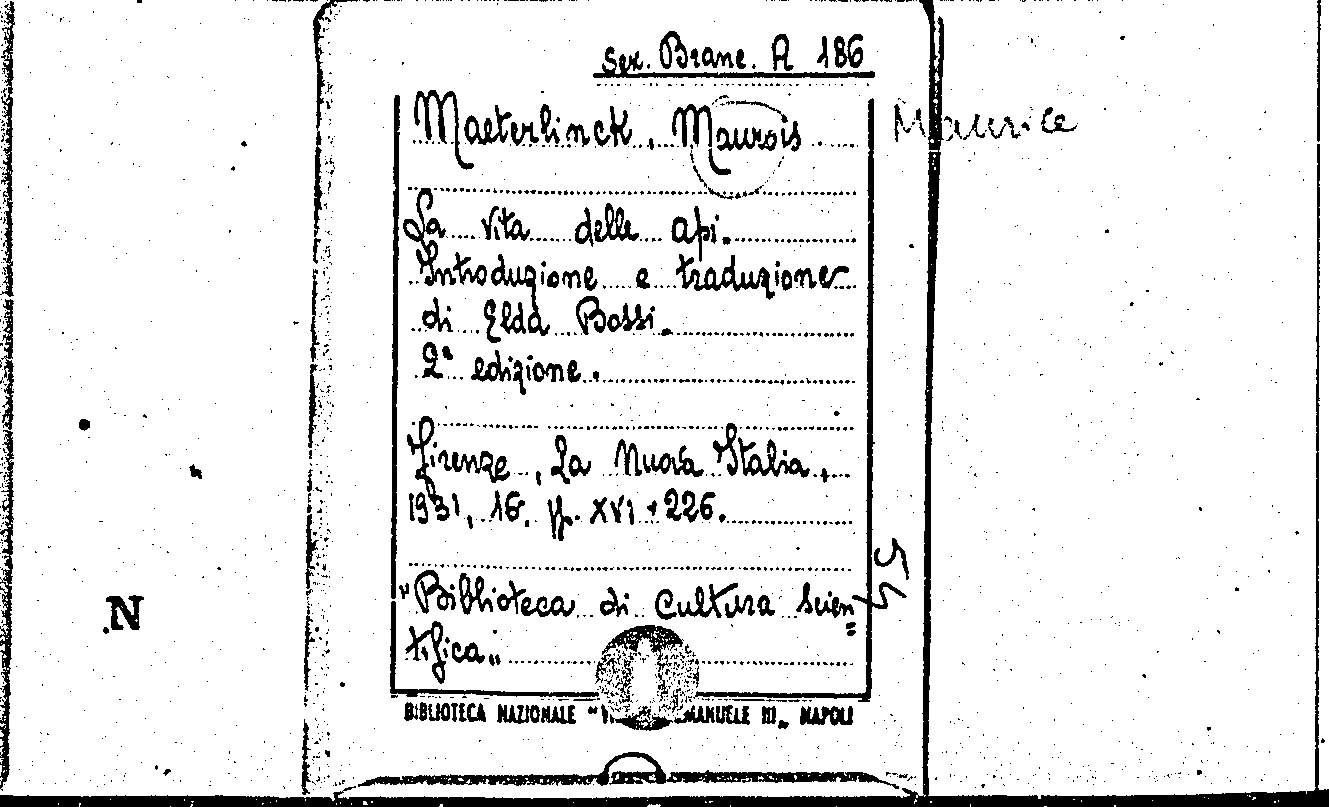 Sez. Branc. A 186
Maeterlinck, Maurois. Maurice
La vita delle api.
Introduzione e traduzione
di Elda Bossi.
2ª edizione.
Firenze, La Nuova Italia,
1931, 16, pp. XVI + 226.
"Biblioteca di Cultura Scien=
tifica"
BIBLIOTECA NAZIONALE " EMANUELE III" NAPOLI
N